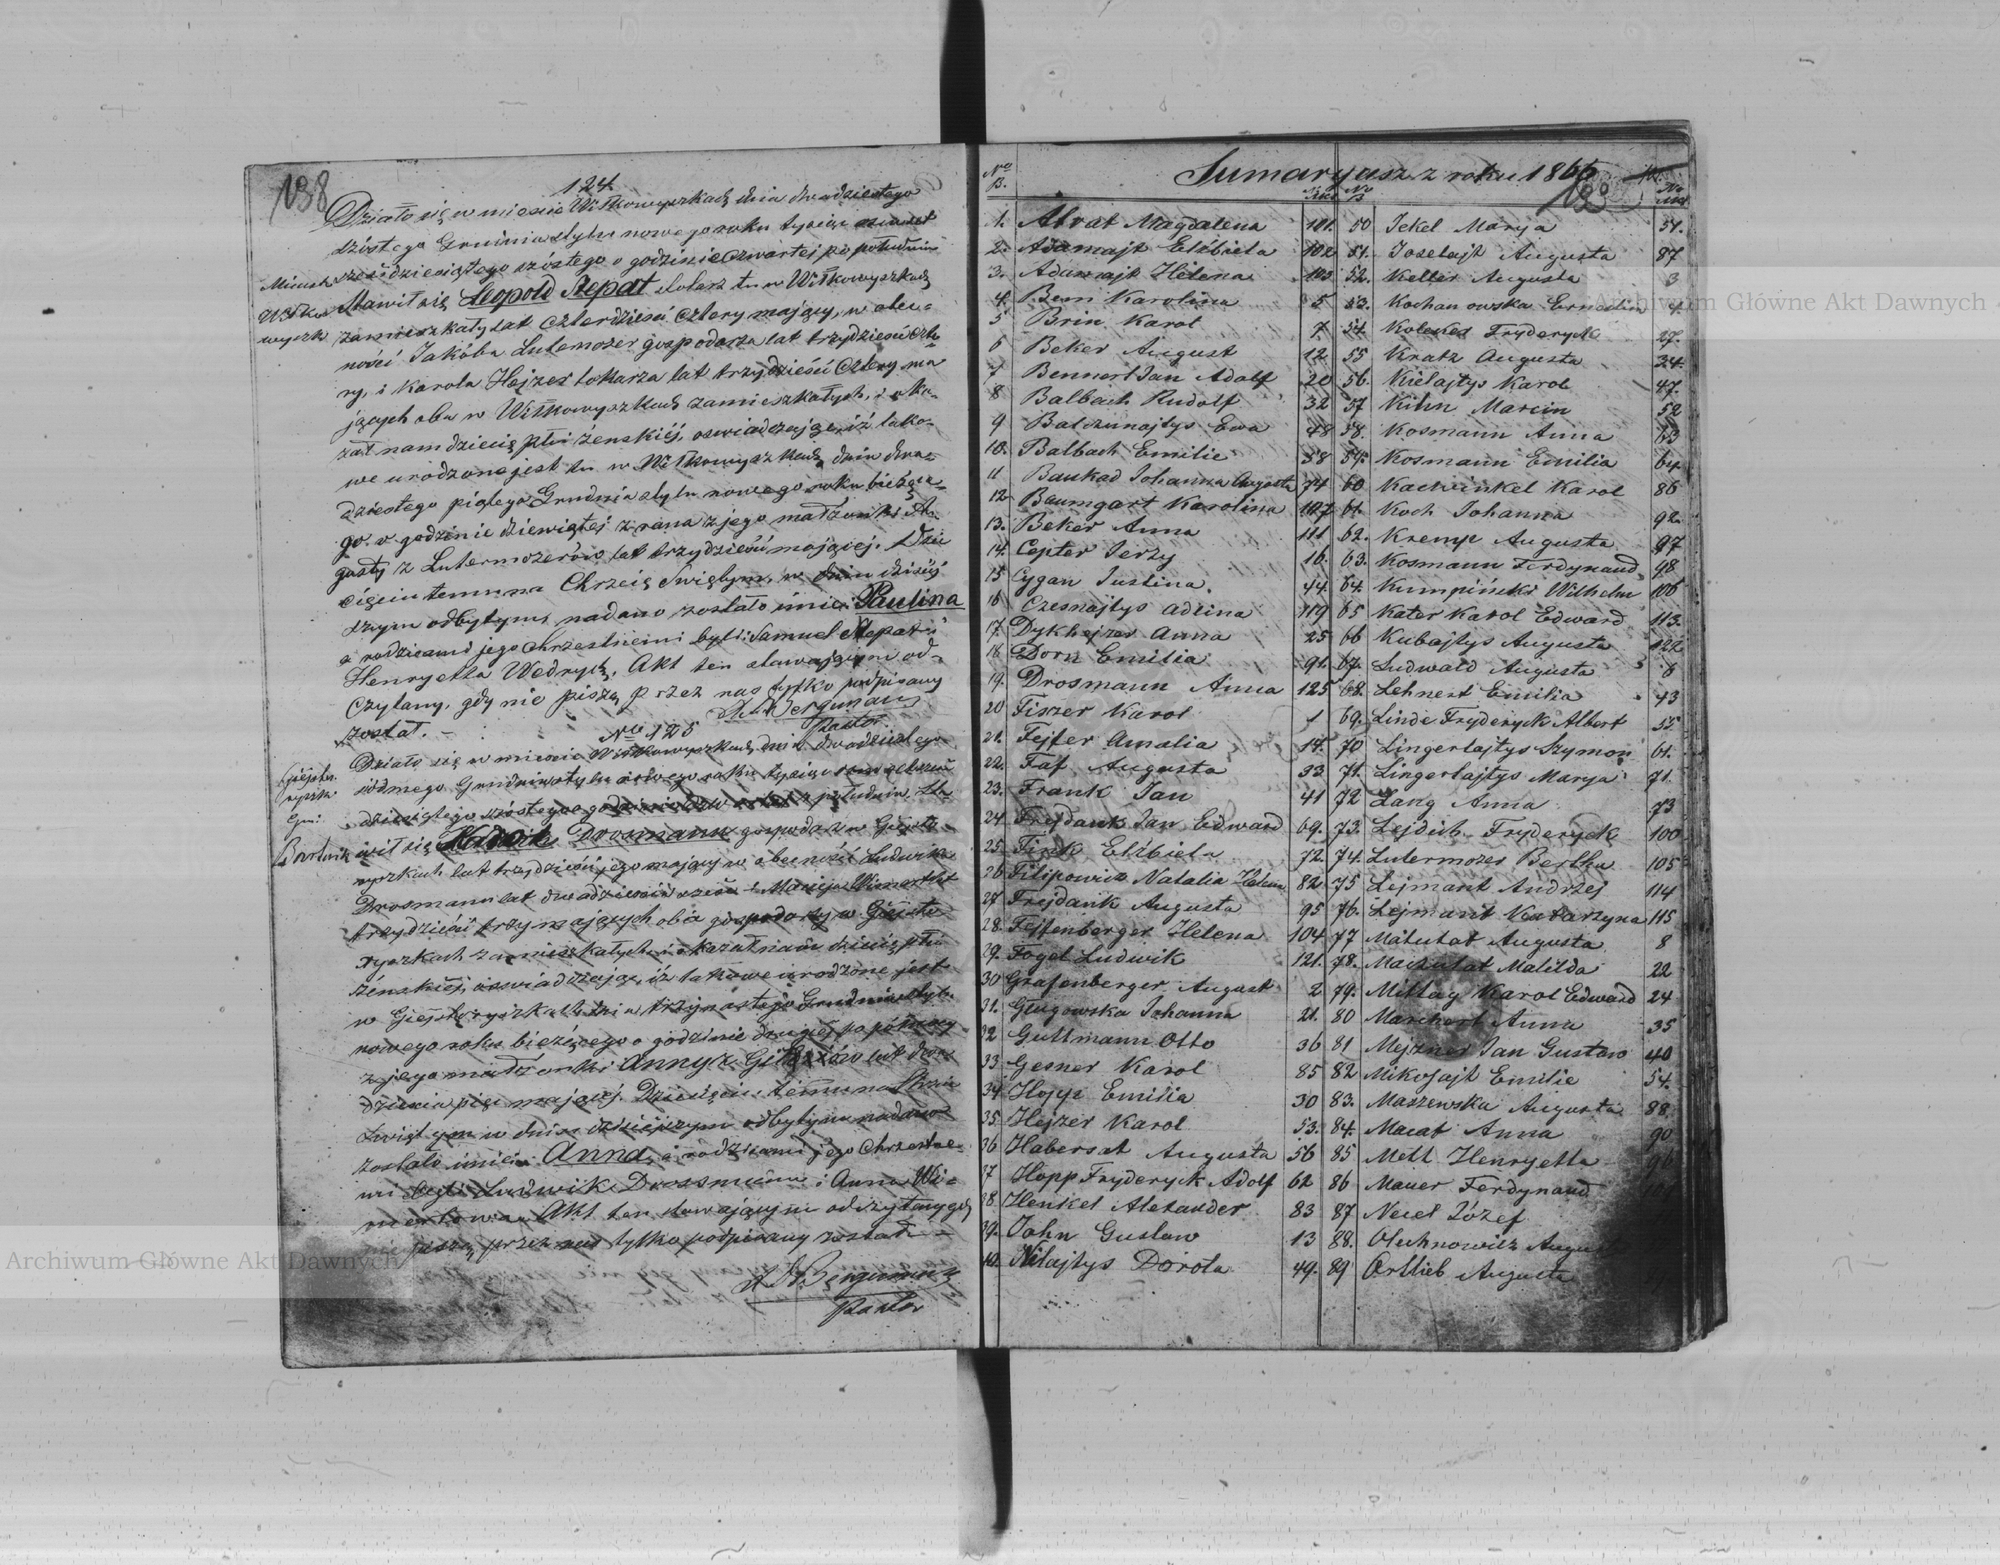 138
124.
Działo się w mieście Wiłkowyszkach dnia dwudziestego
szóstego Grudnia stylu nowego roku tysiąc osiemset
sześćdziesiątego szóstego o godzinie czwartej po południu
Miasto
Wiłko
wyszk
Stawił się Leopold Stepat stolarz tu w Wiłkowyszkach
zamieszkały lat czterdzieści cztery mający, w obec-
ności Jakóba Lutermozer gospodarza lat trzydzieści czte
ry, i Karola Hejzer tokarza lat trzydzieści cztery ma
jących oba w Wiłkowyszkach zamieszkałych, i oka-
zał nam dziecię płci żeńskiéj, oswiadczając, iż tako-
we urodzone jest tu w Wiłkowyszkach dnia dwu-
dziestego piątego Grudnia stylu nowego roku bieżące-
go o godzinie dziewiątej z rana z jego małżonki Au-
gusty z Lutermozerów lat trzydzieści mającej. Dzie
cięciu temu na Chrzcie Świętym, w dniu dzisiej
szym odbytym, nadano zostało imie: Paulina
a rodzicami jego chrzestnemi byli: Samuel Stepat i
Henryetta Wedrych. Akt ten stawającym od-
czytany, gdy nie piszą przez nas tylko podpisany
został. -
Bergmann
Pastor
No 125
Działo się w mieście Wiłkowyszkach dnia dwudziestego
siódmego Grudnia stylu nowego roku tysiąc osmset sześć
dziesiątego szóstego o godzinie z południa, Sta
Gmi:
Bartnik
wił się Drosmann gospodarz w
ryszkach lat trzydzieści jego mający w obecności Ludwika
Drosmann lat dwadzieścia osiem i Macieja
trzydzieści trzy mających oba gospodarzy w Giejste
ryszkach zamieszkałych i okazał nam dziecię płci
żeńskiej, oswiadczając, iż takowe urodzone jest
w Giejsteryszkach dnia trzynastego Grudnia stylu
nowego roku bieżącego o godzinie drugiej po północy
z jego małżonki Anny z lat dwa
dzieścia pięć mającej. Dziecięciu temu na Chrzcie
Świętym w dniu dzisiejszym odbytym nadano
zostało imie: Anna, a rodzicami jego Chrzestne-
mi byli: Ludwik Drosmann i Anna Wi-
mertowa. Akt ten stawającym odczytany gdy
nie piszą przez nas tylko podpisany został -
Bergmann
Pastor
Sumaryusz z roku 1866
No B. No Akt No B No Akt
1. Atrat Magdalena 101. 50 Jekel Marya 51.
2. Adamajt Elżbieta 102 51. Joselajt Augusta 87
3. Adamajt Helena 103 52. Keller Augusta 3
4. Bem Karolina 5 53. Kochanowska Ernestina 4.
5 Brin Karol 7 54. Fryderyk 27.
6 Beker August 12 55 Kratz Augusta 34.
7 Bennert Jan Adolf 20 56. Kielajtys Karol 47.
8 Balbach Rudolf 32 57 Kihn Marcin 52
9 Balczunajtys Ewa 48 58. Kosmann Anna 63
10. Balbach Emilie 58 59. Kosmann Emilia 64
11 Baukad Johanna Augusta 74 60 Kachwinkel Karol 86
12. Baumgart Karolina 107 61. Koch Johanna 92.
13. Beker Anna 111 62. Kremp Augusta 97
14. Cepter Jerzy 16. 63. Kosmann Ferdynand 98
15 Cygan Justina 44 64. Kumpiński Wilhelm 106
16 Czesnajtys Adlina 119 65 Kater Karol Edward 113.
17. Dykhejzer Anna 25 66 Kubajtys Augusta 122
18 Dorn Emilia 91. 67. Ludwald Augusta 6
19. Drosmann Anna 125 68. Lehnert Emilia 43
20 Fiszer Karol 1 69. Linde Fryderyk Albert 55
21. Fejfer Amalia 14. 70 Lingertajtys Szymon 61.
22. Faf Augusta 33 71. Lingertajtys Marya 71.
23. Frank Jan 41 72 Lang Anna 73
24 Frejdank Jan Edward 69. 73. Lejdich Fryderyk 100
25. Fink Elżbieta 72. 74. Lutermozer Bertha 105
26 Filipowicz Natalia Helena 82 75 Lejmant Andrzej 114
27 Frejdank Augusta 95 76. Lejmant Katarzyna 115
28. Fejfenberger Helena 104 77 Matutat Augusta 8
29. Fogel Ludwik 121. 78. Maczutat Matilda 22
30 Grafenberger August 2 79. Mittag Karol Edward 24
31. Gługowska Johanna 21. 80 Marchert Anna 35
32 Guttmann Otto 36 81 Mejzner Jan Gustaw 40
33 Gesner Karol 85 82 Mikołajt Emilie 54.
34 Hopp Emilia 30 83. Maszewska Augusta 88
35. Hejzer Karol 53. 84. Macat Anna 90
36 Habersat Augusta 56 85 Mett Henryetta 96
37 Hopp Fryderyk Adolf 62 86 Mauer Ferdynand
38. Henkel Alexander 83 87 Necel Józef
39. John Gustaw 13 88. Olechnowicz
40. Dorota 49. 89 Ortlieb Augusta
Archiwum Główne Akt Dawnych
Archiwum Główne Akt Dawnych